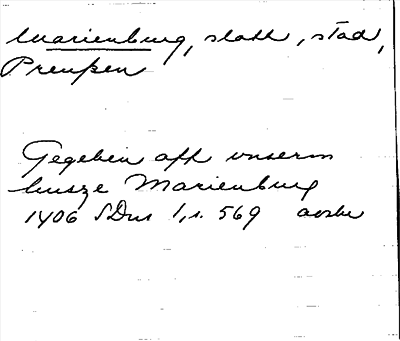 Marienburg, slott, stad,
Preuβen
Gegeben aff vnserm
husze Marienburg
1406 SDns 1, s. 569